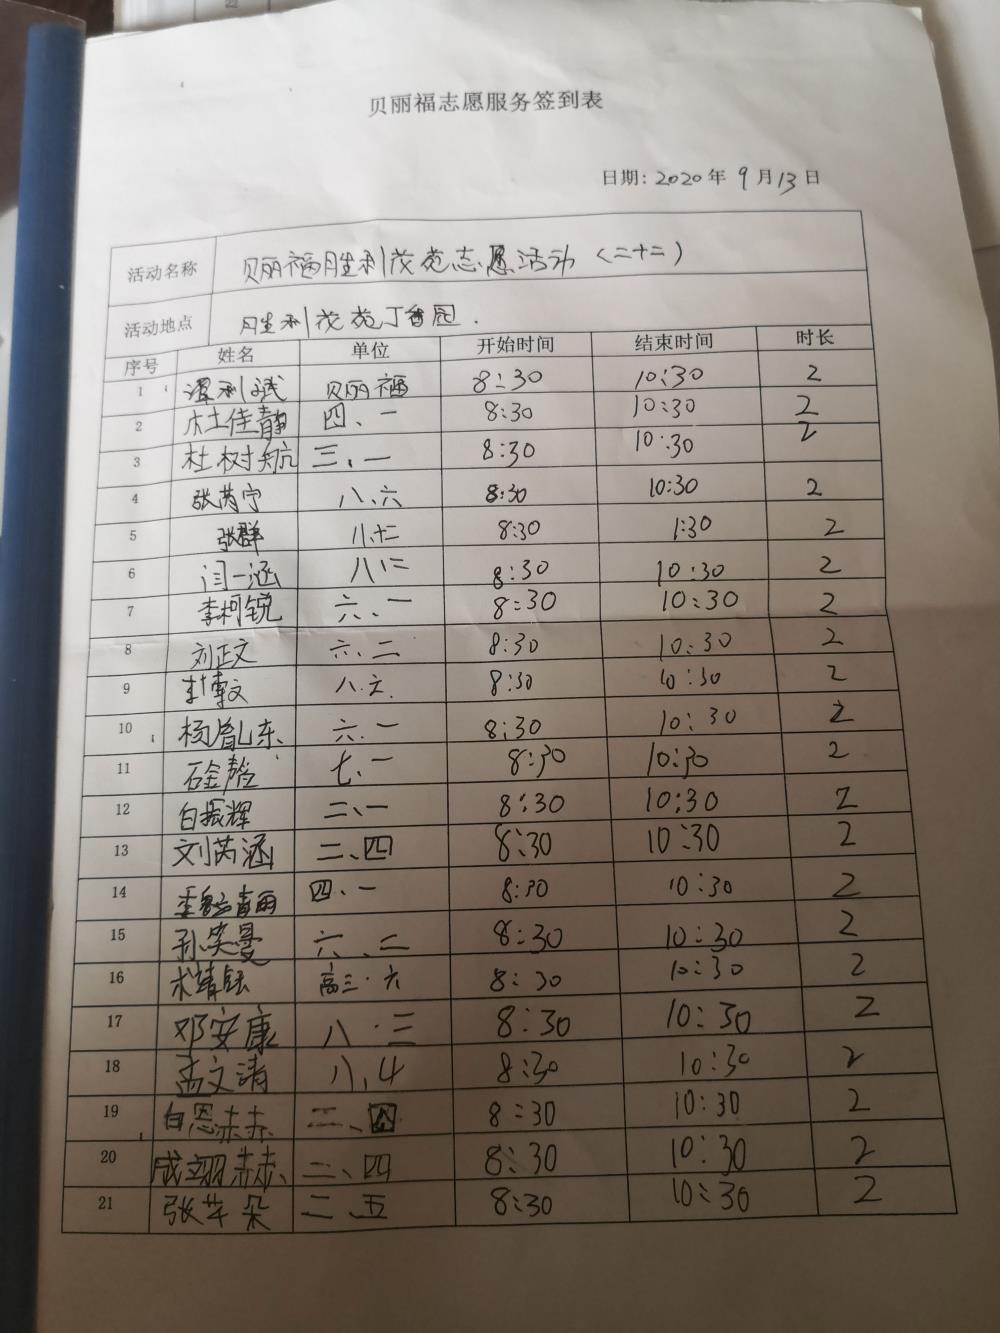 贝丽福志愿服务签到表
日期: 2020 年 9 月 13 日
活动名称 贝丽福胜利茂苑志愿活动（二十二）
活动地点 胜利茂苑丁香园.
序号 姓名 单位 开始时间 结束时间 时长
1 谭利斌 贝丽福 8:30 10:30 2
2 杜佳静 四、一 8:30 10:30 2
3 杜树航 三、一 8:30 10:30 2
4 张芮宁 八、六 8:30 10:30 2
5 张群 八、十二 8:30 1:30 2
6 闫一涵 八、二 8:30 10:30 2
7 李柯锐 六、一 8:30 10:30 2
8 刘正文 六、二 8:30 10:30 2
9 八.六. 8:30 10:30 2
10 杨胤东 六.一 8:30 10:30 2
11 七.一 8:30 10:30 2
12 白振辉 二、一 8:30 10:30 2
13 刘芮涵 二、四 8:30 10:30 2
14 四、一 8:30 10:30 2
15 孙笑曼 六、二 8:30 10:30 2
16 高三·六 8:30 10:30 2
17 邓安康 八·三 8:30 10:30 2
18 孟文清 八.4 8:30 10:30 2
19 白恩赫 二、四 8:30 10:30 2
20 成翊赫 二、四 8:30 10:30 2
21 张芊朵 二、五 8:30 10:30 2